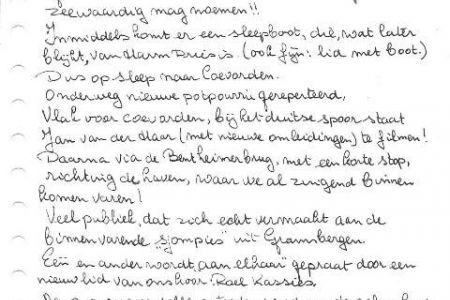 zeewaardig mag noemen!!
Inmiddels komt er een sleepboot, die, wat later
blijkt, van Harm Kuis is. (ook fijn: lid met boot.)
Dus op sleep naar Coevorden.
Onderweg nieuwe potpourri gerepeteerd,
Vlak voor coevorden, bij het duitse spoor staat
Jan van der Haar (met nieuwe omleidingen) te filmen!
Daarna via de Bentheimerbrug, met een korte stop,
richting de haven, waar we al zingend binnen
komen varen!
Veel publiek, dat zich echt vermaakt aan de
binnenvarende "sjompies" uit Gramsbergen.
Eén en ander wordt aan elkaar gepraat door een
nieuw lid van ons koor, Roel Kassies.